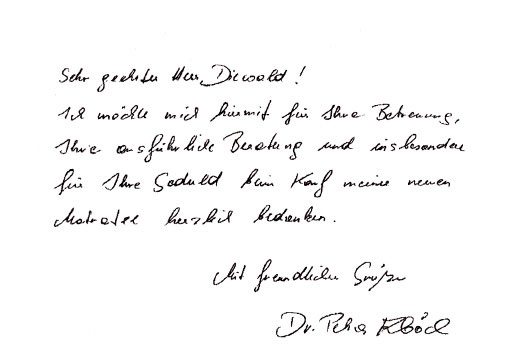 Sehr geehrter Herr Diewald!
Ich möchte mich hiermit für Ihre Betreuung,
Ihre ausführliche Beratung und insbesondere
für Ihre Geduld beim Kauf meiner neuen
Matratze herzlich bedanken.
Mit freundlichen Grüßen
Dr. Peter